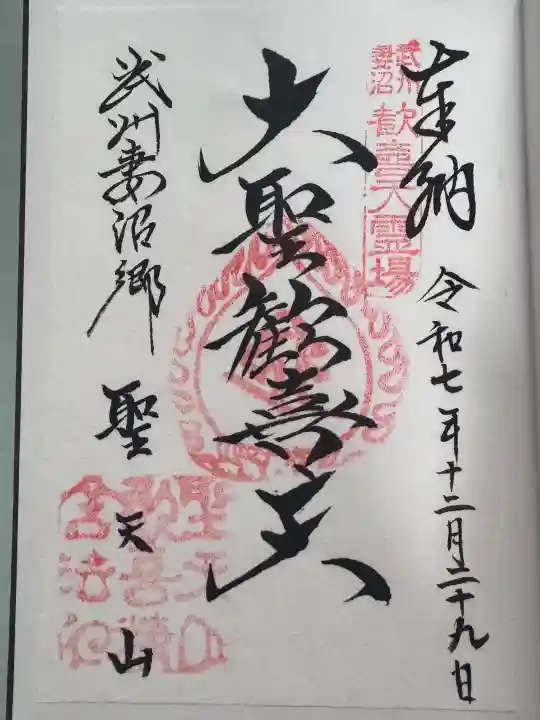 奉納
令和七年十二月二十九日
武州
妻沼
歓喜天霊場
大聖歓喜天
武州妻沼郷
聖天山